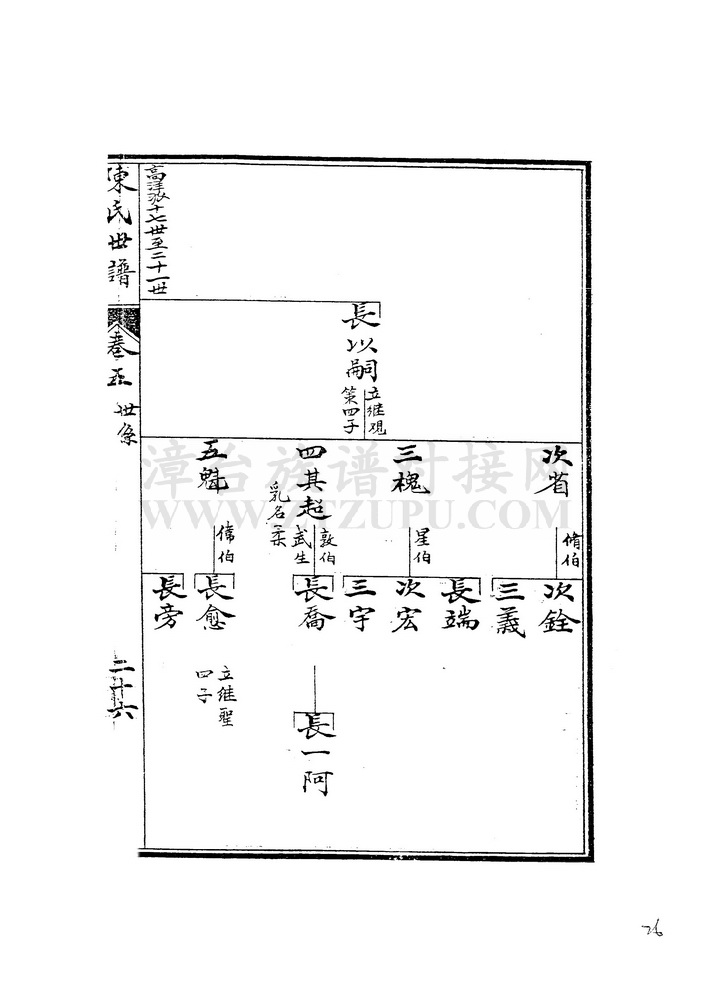 陳氏世譜
卷五 世系
二十六
高洋派十七世至二十一世
長以嗣
立繼觀
第四子
次省
脩伯
三槐
星伯
四其超
敦伯
武生
乳名柔
五魁
偉伯
次銓
三義
長端
次宏
三宇
長喬
長愈
立繼聖
四子
長旁
長一阿
漳台族谱对接网
WWW.ZTZUPU.COM
26